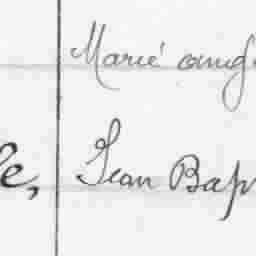 Marié
le, Jean Bap